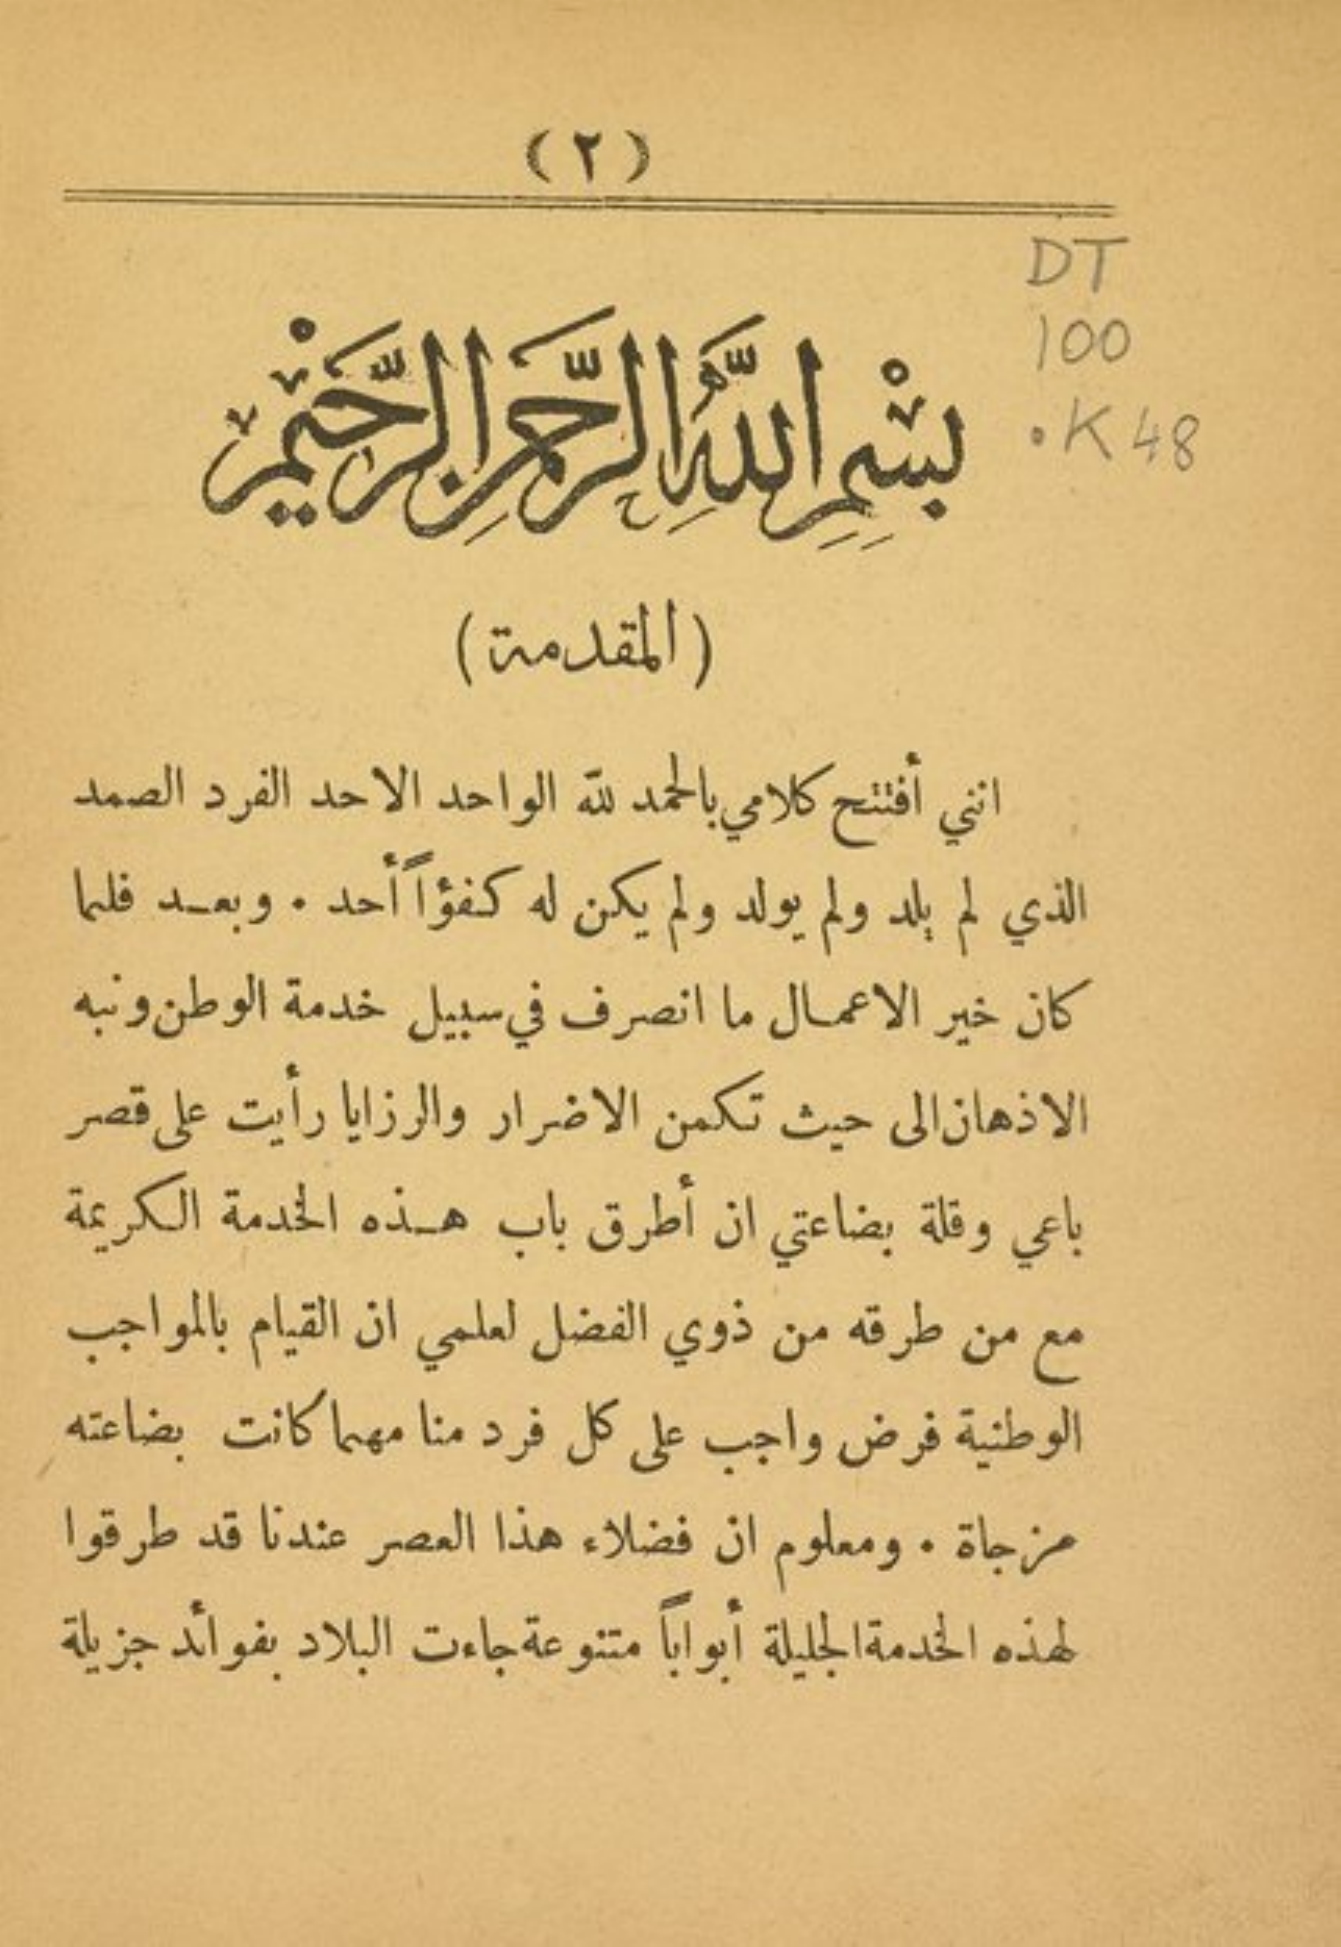 (٢)
DT
100
.K48
بِسْمِ اللَّهِ الرَّحْمَنِ الرَّحِيْمِ
(المقدمة)
انني أفتتح كلامي بالحمد لله الواحد الاحد الفرد الصمد
الذي لم يلد ولم يولد ولم يكن له كفؤاً أحد . وبعد فلما
كان خير الاعمال ما انصرف في سبيل خدمة الوطن ونبه
الاذهان الى حيث تكمن الاضرار والرزايا رأيت على قصر
باعي وقلة بضاعتي ان أطرق باب هذه الخدمة الكريمة
مع من طرقه من ذوي الفضل لعلمي ان القيام بالمواجب
الوطنية فرض واجب على كل فرد منا مهما كانت بضاعته
مزجاة . ومعلوم ان فضلاء هذا العصر عندنا قد طرقوا
لهذه الخدمة الجليلة أبواباً متنوعة جاءت البلاد بفوائد جزيلة